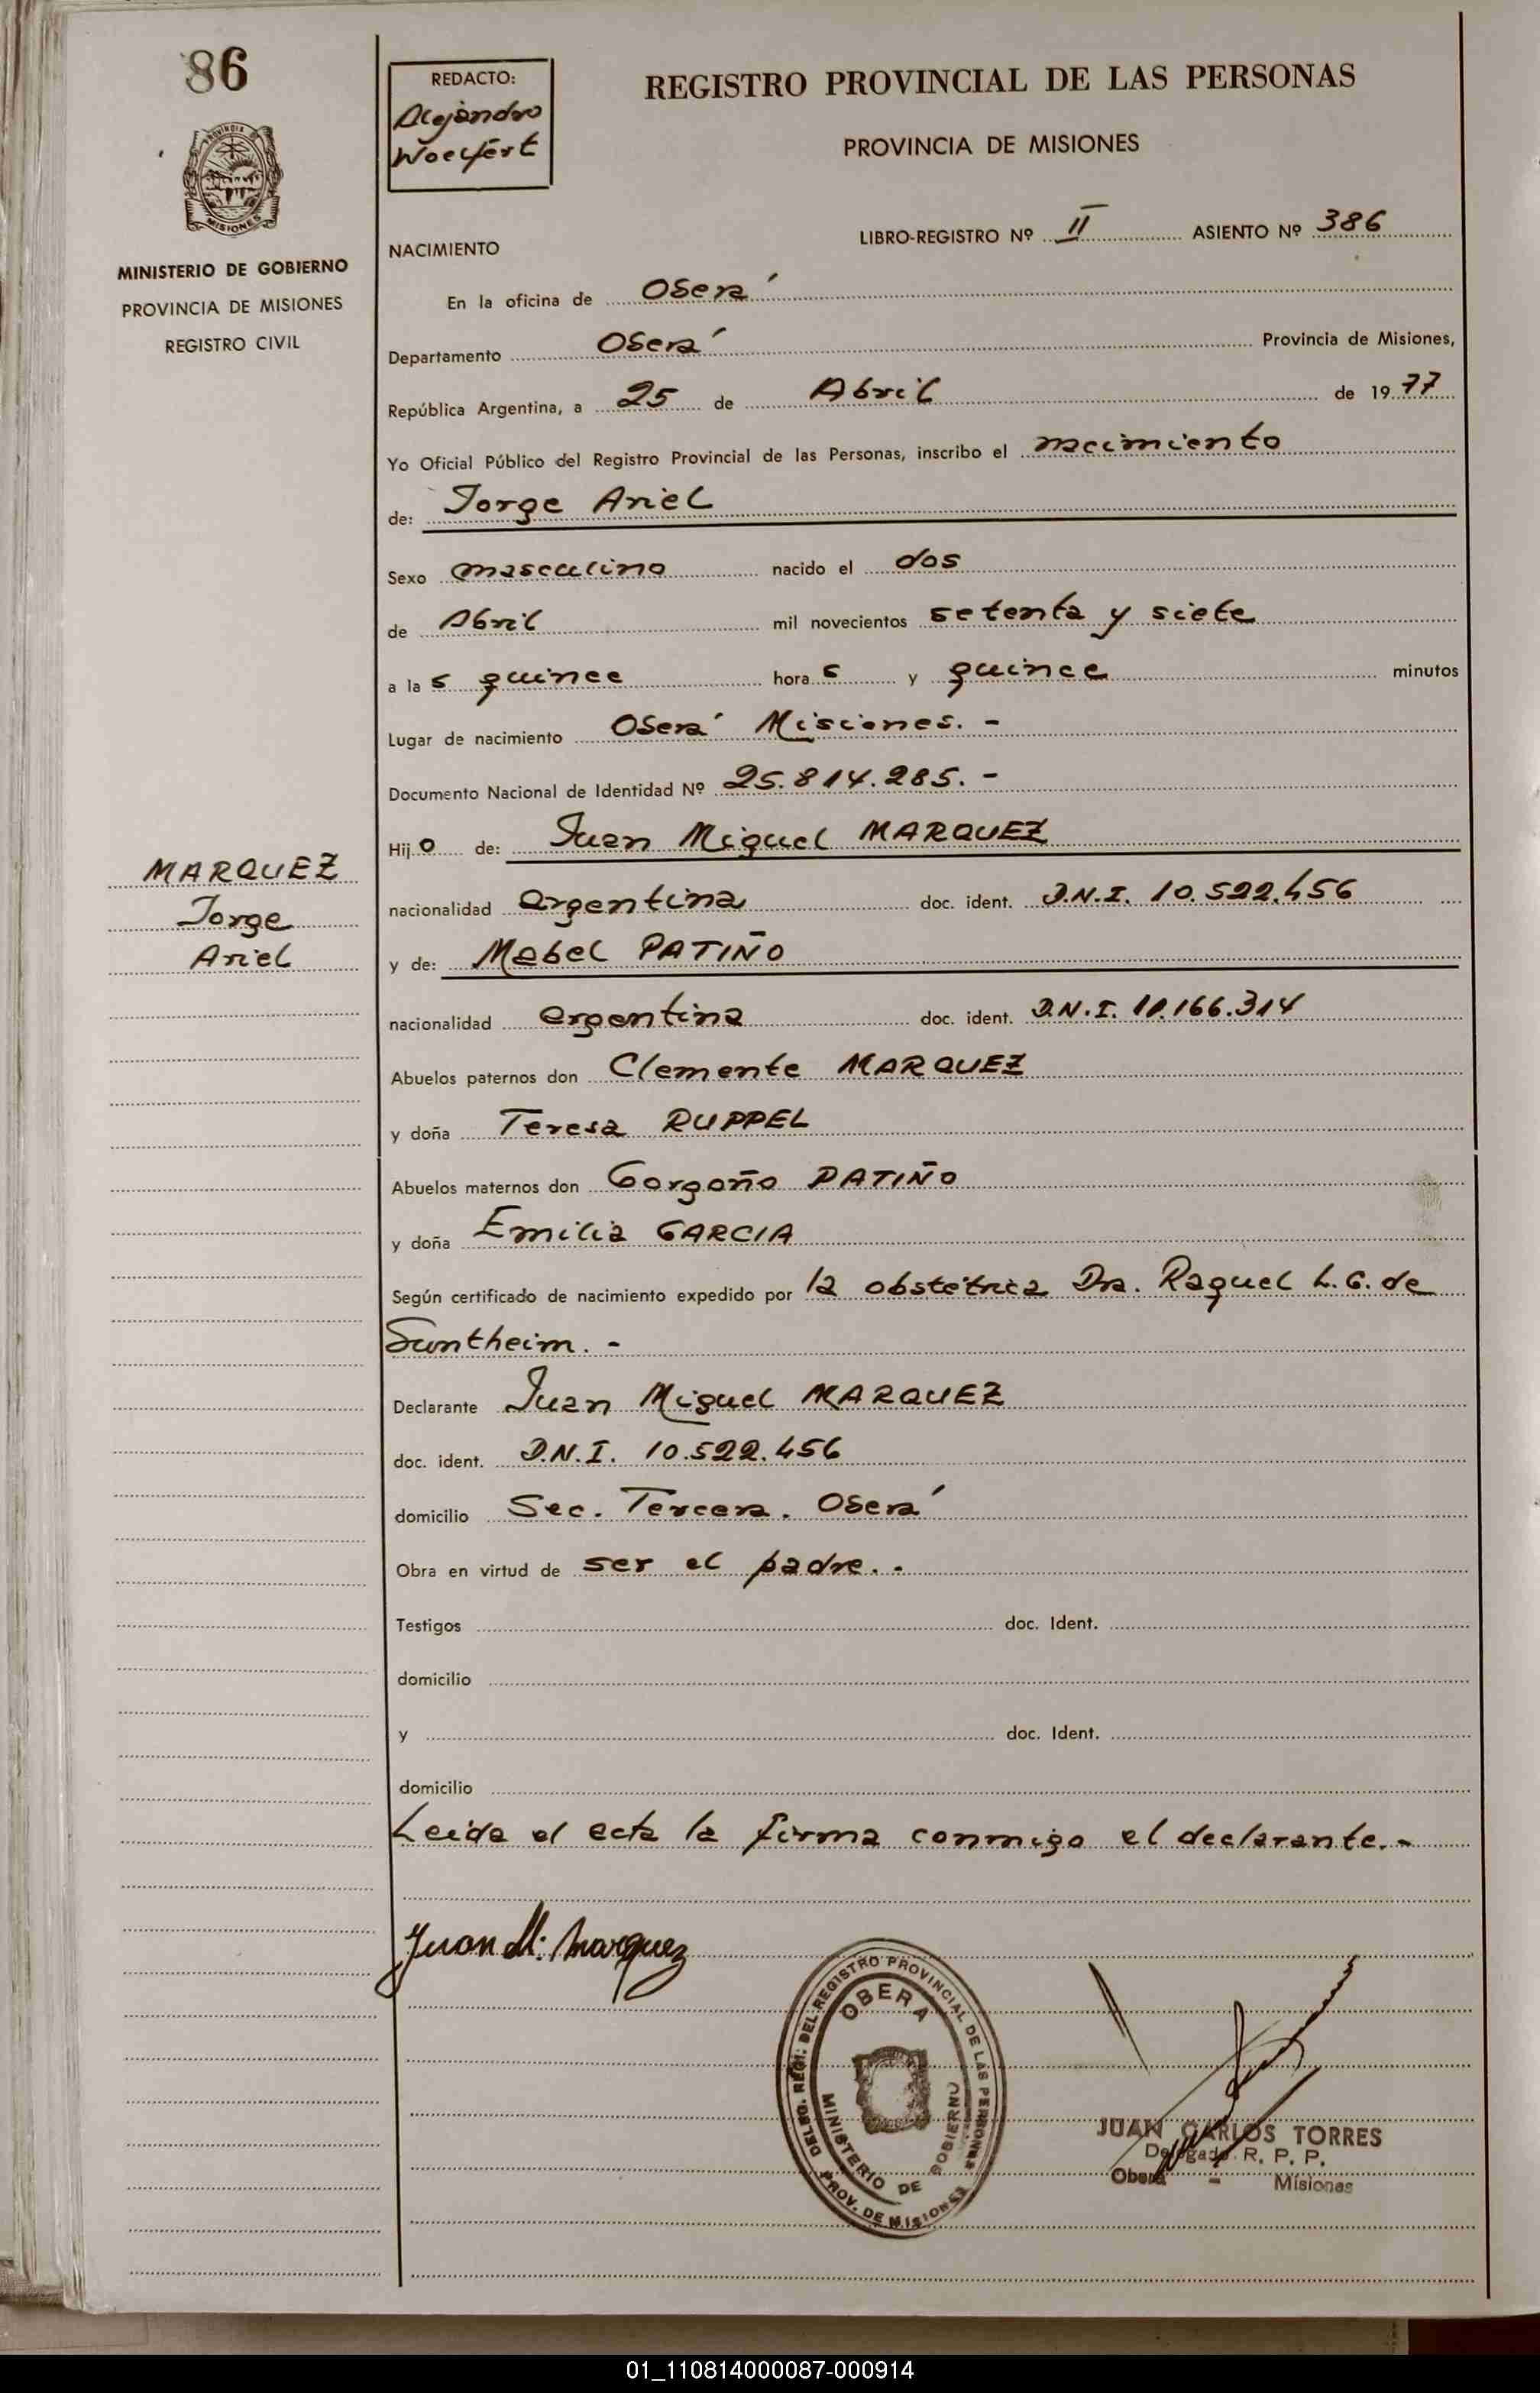 86
PROVINCIA DE
MISIONES
MINISTERIO DE GOBIERNO
PROVINCIA DE MISIONES
REGISTRO CIVIL
MARQUEZ
Jorge
Ariel
REDACTO:
Alejandro
Woelfert
REGISTRO PROVINCIAL DE LAS PERSONAS
PROVINCIA DE MISIONES
LIBRO-REGISTRO Nº II ASIENTO Nº 386
NACIMIENTO
En la oficina de Oberá
Departamento Oberá Provincia de Misiones,
República Argentina, a 25 de Abril de 1977
Yo Oficial Público del Registro Provincial de las Personas, inscribo el nacimiento
de: Jorge Ariel
Sexo masculino nacido el dos
de Abril mil novecientos setenta y siete
a la s quince hora s y quince minutos
Lugar de nacimiento Oberá Misiones. -
Documento Nacional de Identidad Nº 25.814.285. -
Hij o de: Juan Miguel MARQUEZ
nacionalidad argentina doc. ident. D.N.I. 10.522.456
y de: Mabel PATIÑO
nacionalidad argentina doc. ident. D.N.I. 11.166.314
Abuelos paternos don Clemente MARQUEZ
y doña Teresa RUPPEL
Abuelos maternos don Gorgoño PATIÑO
y doña Emilia GARCIA
Según certificado de nacimiento expedido por la obstétrica Dra. Raquel L. G. de
Suntheim. -
Declarante Juan Miguel MARQUEZ
doc. ident. D.N.I. 10.522.456
domicilio Sec. Tercera. Oberá
Obra en virtud de ser el padre. -
Testigos doc. Ident.
domicilio
y doc. Ident.
domicilio
Leida el acta la firma conmigo el declarante. -
Juan M. Marquez
DELEG. REGI. DEL REGISTRO PROVINCIAL DE LAS PERSONAS
OBERA
MINISTERIO DE GOBIERNO
PROV. DE MISIONES
JUAN CARLOS TORRES
Delegado R. P. P.
Oberá - Misiones
01_110814000087-000914